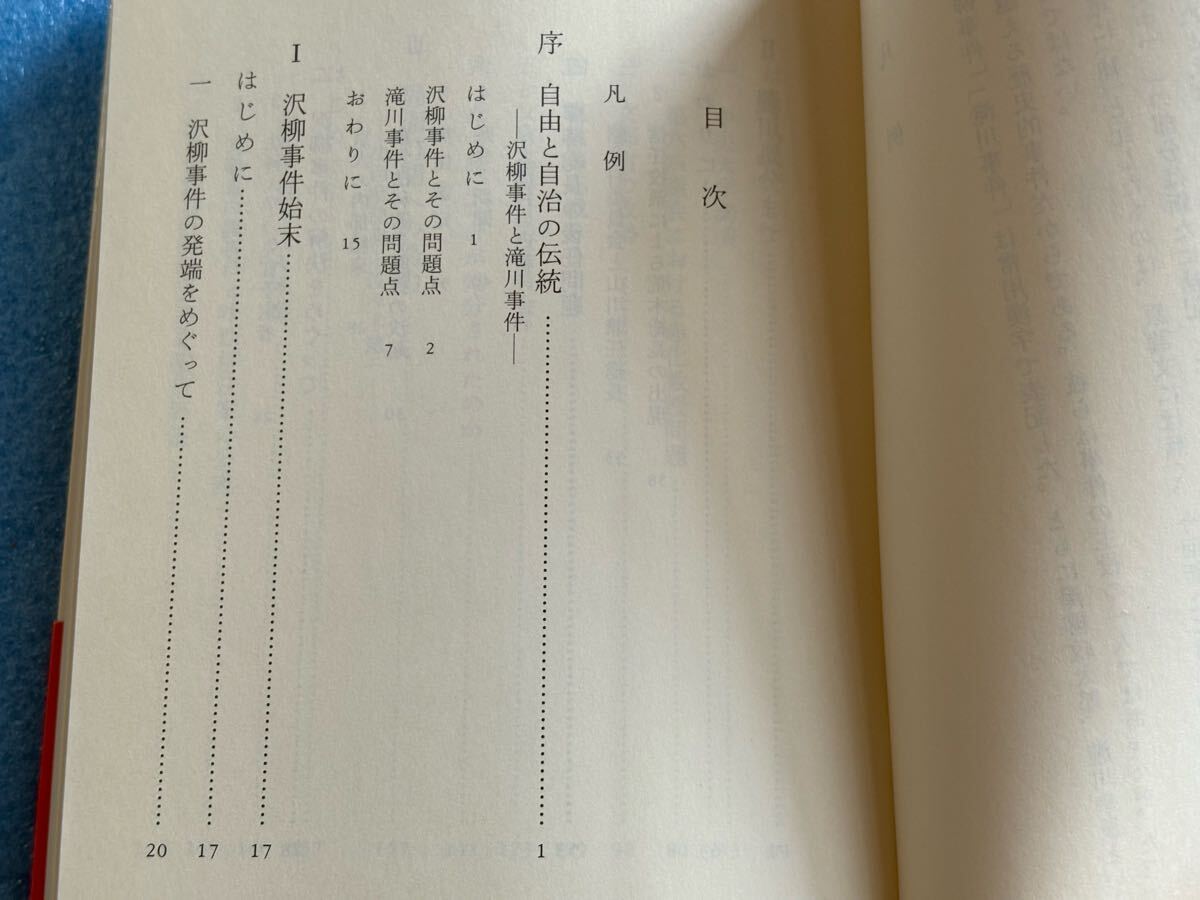 目次
凡例
序 自由と自治の伝統……………………1
―沢柳事件と滝川事件―
はじめに 1
沢柳事件とその問題点 2
滝川事件とその問題点 7
おわりに 15
I 沢柳事件始末……………………17
はじめに……………………17
一 沢柳事件の発端をめぐって……………………20